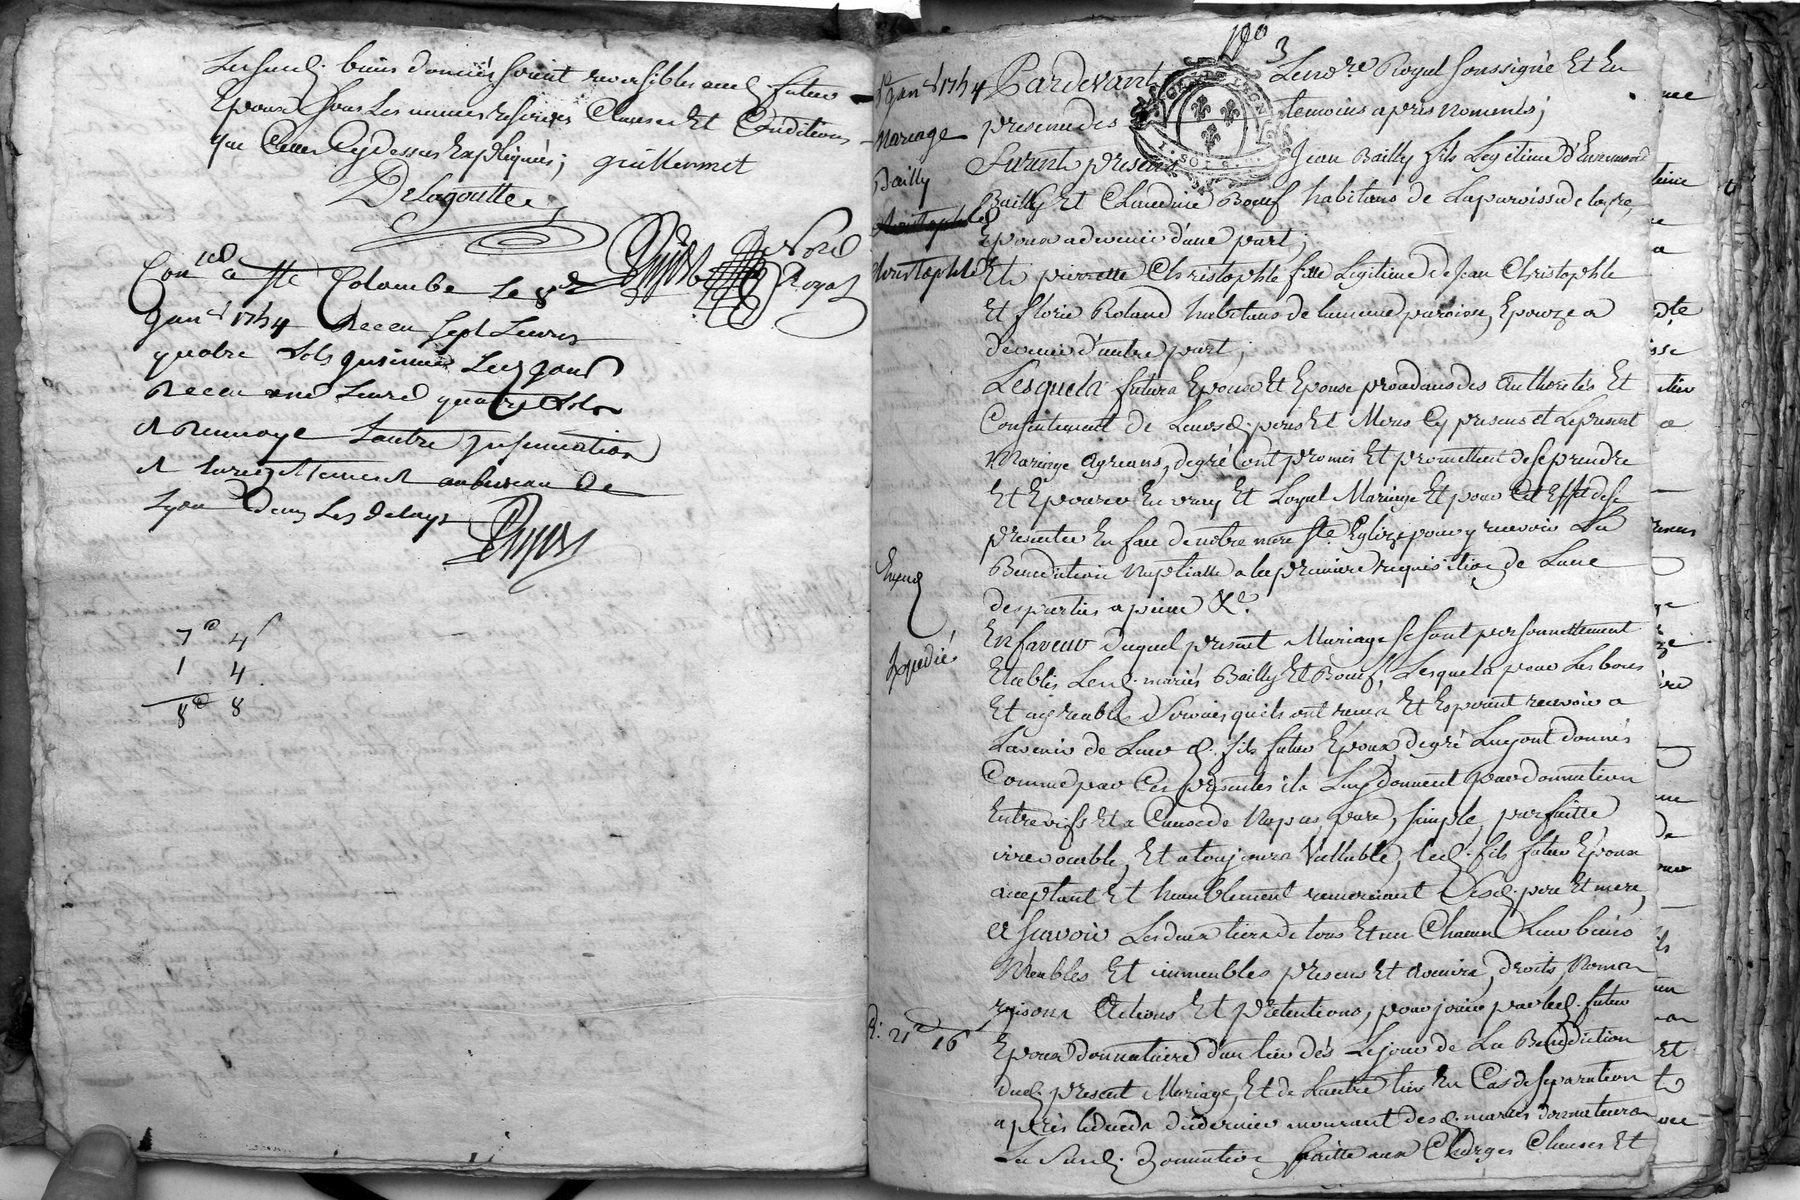 Lesusd. biens donnés soient reversibles aud. futur
Epoux sous Les memes reserves Clauses Et Conditions
que Celles Cy dessus Expliquées; guillermet
Delagoutte
Nore
Royal
Con.lle a Ste Colombe Le 8e
Janr. 1754 Receu sept Livres
quatre sols
Receu une Livre quatre sols
et renvoyé Lautre insinuation
et au bureau de
Lyon dans Les delays
7 4
1 4
8 8
190
3
Janr. 1754
Mariage
Bailly
Christophle
Christophle
Expedié
R: 21 16
Pardevant Le no.re Royal soussigné Et En
presence des temoins apres nommés;
Furent presens Jean Bailly fils Legitime d'Ennemond
Bailly Et Claudine Boeuf habitans de La paroisse de Loyre,
Epoux advenir d'une part;
Et pierrette Christophle fille Legitime de Jean Christophle
Et florie Roland habitans de la meme paroisse, Epouze a
devenir d'autre part;
Lesquels futurs Epoux Et Epouse procedans des authorités Et
Consentement de Leursd. peres Et Meres Cy presens et Le present
Mariage agreans, degré ont promis Et promettent de se prendre
Et Epouser En vray Et Loyal Mariage Et pour Cet Effet de se
presenter En face de notre mere Ste Eglize pour y recevoir La
Benediction Nuptialle a la premiere requisition de Lune
des parties a peine &c.
En faveur duquel present Mariage se sont personnellement
Etablis Lesd. mariés Bailly Et Boeuf, Lesquels pour Les bons
Et agreables Services quils ont receu Et Esperent recevoir a
Lavenir de Leur d. fils futur Epoux, degré Luy ont donnés
Comme par Ces presentes ils Luy donnent par donnation
Entre vifs Et a Cause de Nopces, pure, simple, parfaitte
irrevocable, Et a toujours Vallable, led. fils futur Epoux
acceptant Et humblement remerciant Sesd. pere Et mere,
a scavoir Les deux tiers de tous Et un Chacun Leurs biens
Meubles Et immeubles presens Et avenir, droits, Noms
raisons Actions Et pretentions, pour jouir par led. futur
Epoux donnataire d'un tier dés Le jour de La Benediction
dud. present Mariage, Et de Lautre tier En Cas de separation
apres le deceds du dernier mourant desd. mariés donnateurs
La susd. donnation faitte aux Charges Clauses Et